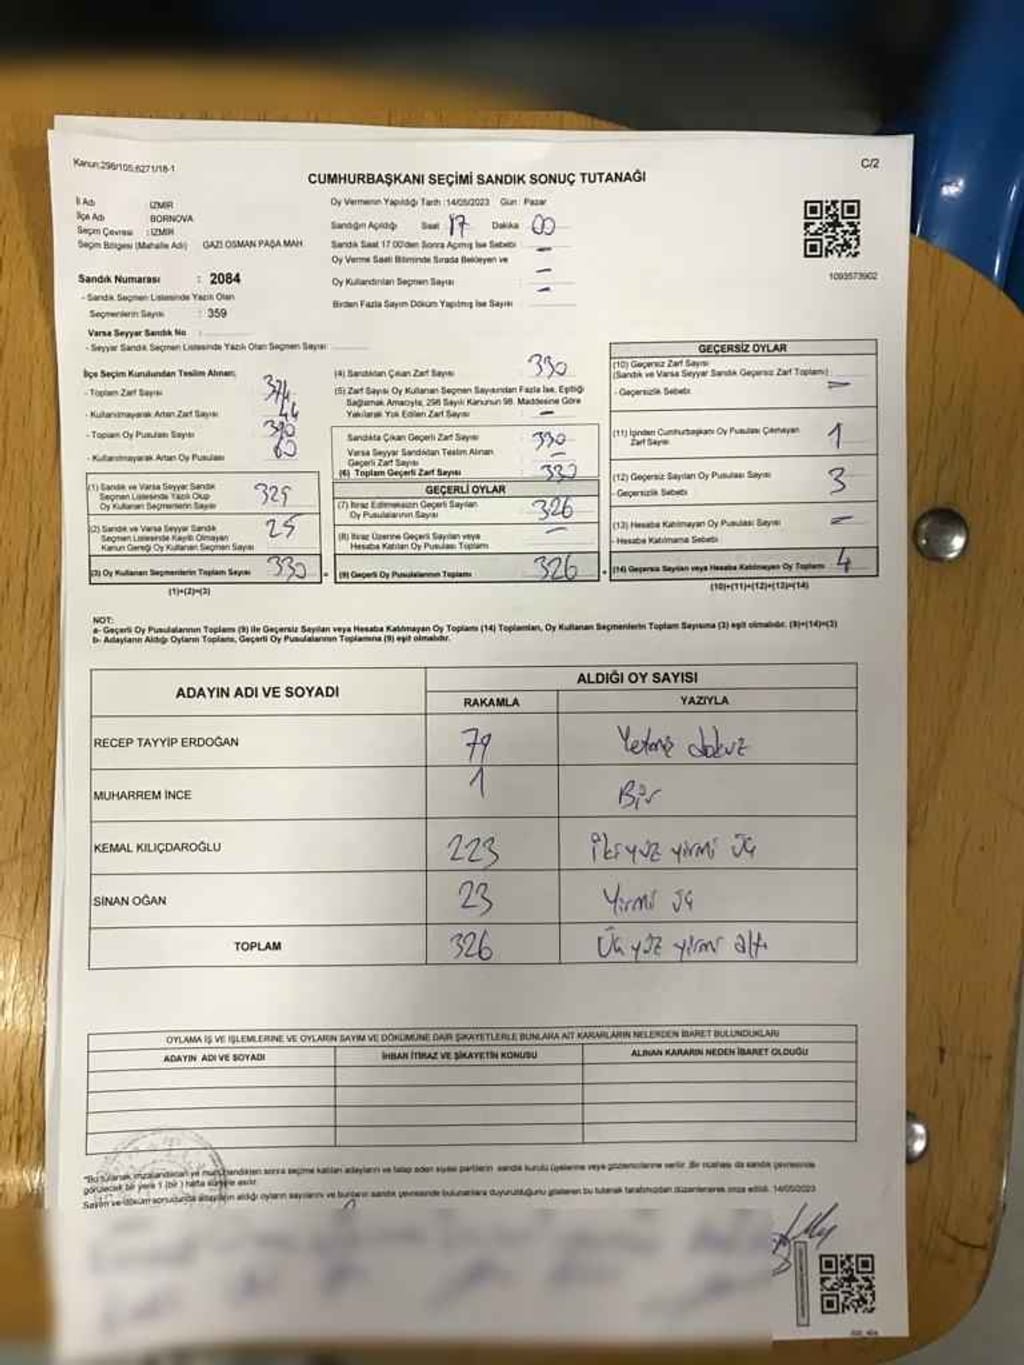 Kanun:298/105,6271/18-1
C/2
CUMHURBAŞKANI SEÇİMİ SANDIK SONUÇ TUTANAĞI
İl Adı : İZMİR
İlçe Adı BORNOVA
Seçim Çevresi : İZMİR
Seçim Bölgesi (Mahalle Adı) GAZİ OSMAN PAŞA MAH.
Sandık Numarası : 2084
- Sandık Seçmen Listesinde Yazılı Olan
Seçmenlerin Sayısı : 359
Varsa Seyyar Sandık No :
- Seyyar Sandık Seçmen Listesinde Yazılı Olan Seçmen Sayısı :
Oy Vermenin Yapıldığı Tarih :14/05/2023 Gün : Pazar
Sandığın Açıldığı Saat 17 Dakika 00
Sandık Saat 17.00'den Sonra Açılmış İse Sebebi : —
Oy Verme Saati Bitiminde Sırada Bekleyen ve
Oy Kullandırılan Seçmen Sayısı —
Birden Fazla Sayım Döküm Yapılmış İse Sayısı : —
1093573902
İlçe Seçim Kurulundan Teslim Alınan;
- Toplam Zarf Sayısı
- Kullanılmayarak Artan Zarf Sayısı 44
- Toplam Oy Pusulası Sayısı 390
- Kullanılmayarak Artan Oy Pusulası 60
(1) Sandık ve Varsa Seyyar Sandık
Seçmen Listesinde Yazılı Olup
Oy Kullanan Seçmenlerin Sayısı
(2) Sandık ve Varsa Seyyar Sandık
Seçmen Listesinde Kayıtlı Olmayan
Kanun Gereği Oy Kullanan Seçmen Sayısı
(3) Oy Kullanan Seçmenlerin Toplam Sayısı 330
(1)+(2)=(3)
(4) Sandıktan Çıkan Zarf Sayısı : 330
(5) Zarf Sayısı Oy Kullanan Seçmen Sayısından Fazla İse, Eşitliği
Sağlamak Amacıyla, 298 Sayılı Kanunun 98. Maddesine Göre
Yakılarak Yok Edilen Zarf Sayısı : —
Sandıkta Çıkan Geçerli Zarf Sayısı : 330
Varsa Seyyar Sandıktan Teslim Alınan
Geçerli Zarf Sayısı : —
(6) Toplam Geçerli Zarf Sayısı : 330
GEÇERLİ OYLAR
(7) İtiraz Edilmeksizin Geçerli Sayılan
Oy Pusulalarının Sayısı : 326
(8) İtiraz Üzerine Geçerli Sayılan veya
Hesaba Katılan Oy Pusulası Toplamı : —
= (9) Geçerli Oy Pusulalarının Toplamı : 326
GEÇERSİZ OYLAR
(10) Geçersiz Zarf Sayısı
(Sandık ve Varsa Seyyar Sandık Geçersiz Zarf Toplamı) : —
- Geçersizlik Sebebi :
(11) İçinden Cumhurbaşkanı Oy Pusulası Çıkmayan
Zarf Sayısı 1
(12) Geçersiz Sayılan Oy Pusulası Sayısı : 3
- Geçersizlik Sebebi
(13) Hesaba Katılmayan Oy Pusulası Sayısı : —
- Hesaba Katılmama Sebebi
+ (14) Geçersiz Sayılan veya Hesaba Katılmayan Oy Toplamı : 4
(10)+(11)+(12)+(13)=(14)
NOT:
a- Geçerli Oy Pusulalarının Toplamı (9) ile Geçersiz Sayılan veya Hesaba Katılmayan Oy Toplamı (14) Toplamları, Oy Kullanan Seçmenlerin Toplam Sayısına (3) eşit olmalıdır. (9)+(14)=(3)
b- Adayların Aldığı Oyların Toplamı, Geçerli Oy Pusulalarının Toplamına (9) eşit olmalıdır.
ADAYIN ADI VE SOYADI ALDIĞI OY SAYISI
RAKAMLA YAZIYLA
RECEP TAYYİP ERDOĞAN 79 Yetmiş dokuz
MUHARREM İNCE 1 Bir
KEMAL KILIÇDAROĞLU 223 İki yüz yirmi üç
SİNAN OĞAN 23 Yirmi üç
TOPLAM 326 Üç yüz yirmi altı
OYLAMA İŞ VE İŞLEMLERİNE VE OYLARIN SAYIM VE DÖKÜMÜNE DAİR ŞİKAYETLERLE BUNLARA AİT KARARLARIN NELERDEN İBARET BULUNDUKLARI
ADAYIN ADI VE SOYADI İHBAR İTİRAZ VE ŞİKAYETİN KONUSU ALINAN KARARIN NEDEN İBARET OLDUĞU
*Bu tutanak imzalandıktan ve mühürlendikten sonra seçime katılan adayların ve talep eden siyasi partilerin sandık kurulu üyelerine veya gözlemcilerine verilir. Bir nüshası da sandık çevresinde
görülecek bir yere 1 (bir) hafta süreyle asılır.
Sayım ve döküm sonucunda adayların aldığı oyların sayılarını ve bunların sandık çevresinde bulunanlara duyurulduğunu gösteren bu tutanak tarafımızdan düzenlenerek imza edildi. 14/05/2023